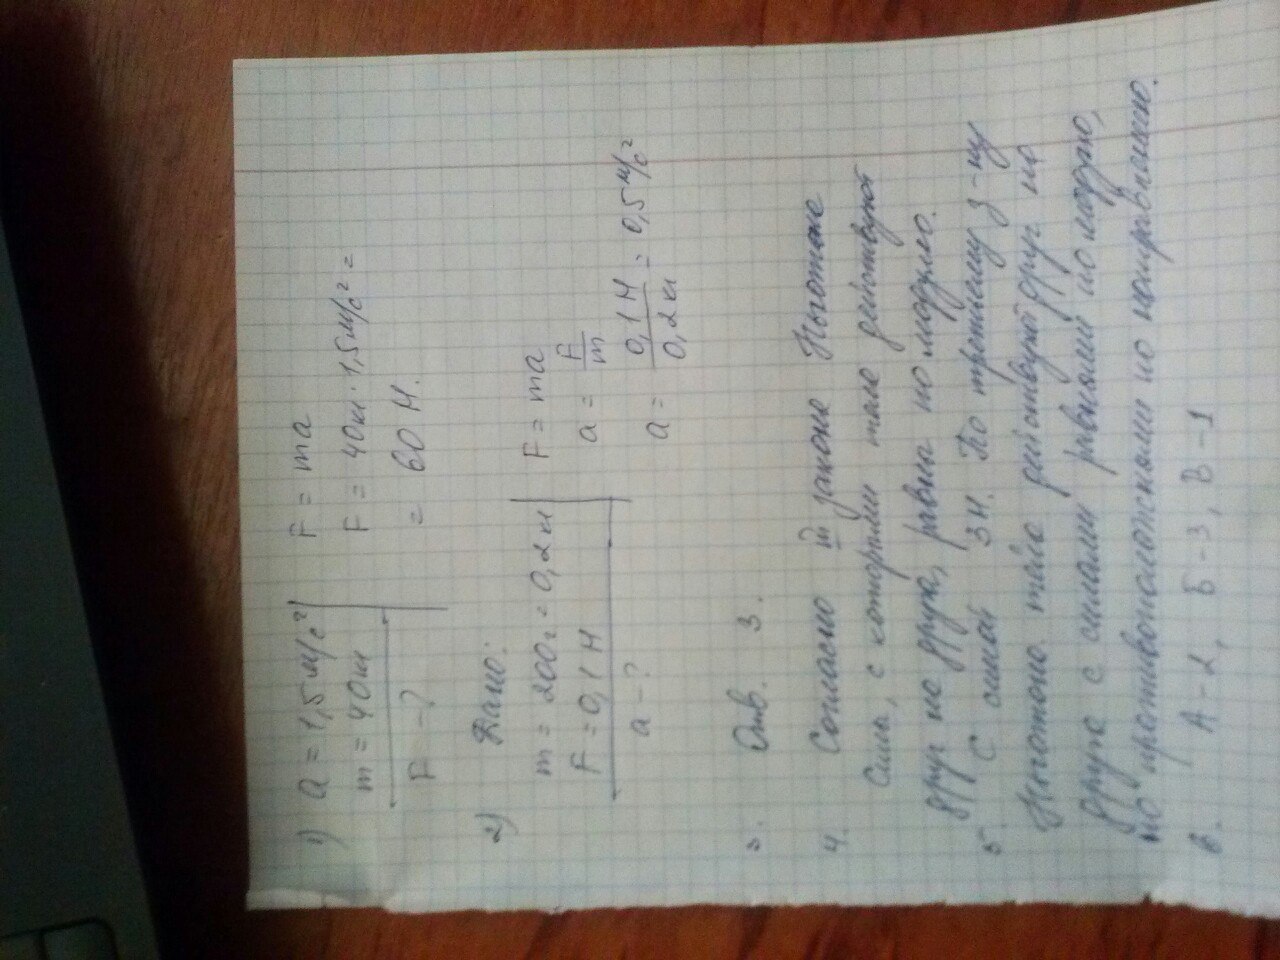 1) a = 1,5 м/с² F = ma
m = 40кг F = 40кг · 1,5м/с² =
F - ? = 60 Н.
2) Дано:
m = 200г = 0,2кг F = ma
F = 0,1 Н a = F/m
a - ? a = 0,1 Н / 0,2 кг = 0,5 м/с²
3. Отв. 3.
4. Согласно III законе Ньютоне
Силы, с которыми тела действуют
друг на друга, равны по модулю.
5. С силой 3Н. По третьему з-ну
Ньютона тела действуют друг на
друга с силами равными по модулю,
но противоположными по направлению.
6. А - 2, Б - 3, В - 1